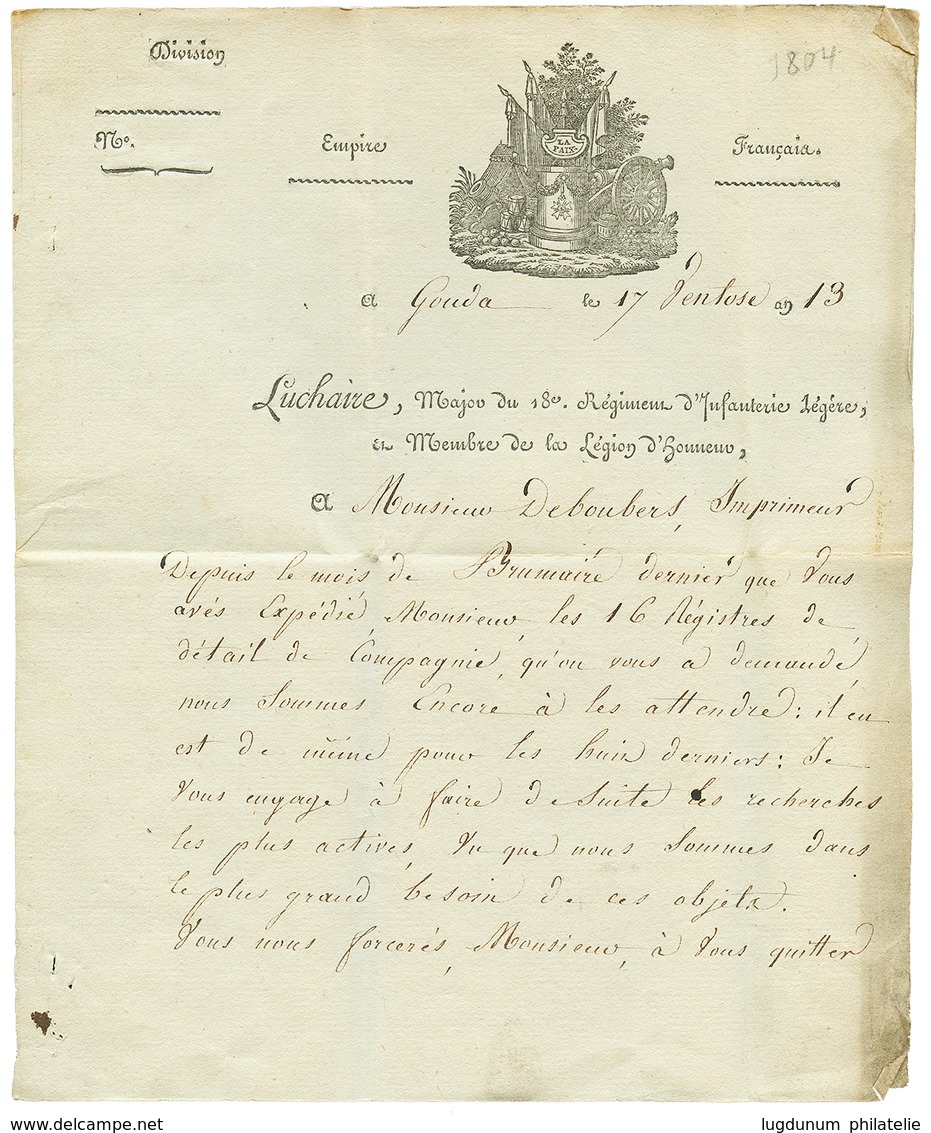 Division
1804
N°.
Empire
LA
PAIX
Français.
A Gouda le 17 Ventose an 13
Luchaire, Major du 18e. Régiment d'Infanterie Légère,
et Membre de la Légion d'Honneur,
A Monsieur Deboubers, Imprimeur
Depuis le mois de Brumaire dernier que Vous
avés Expédié, Monsieur, les 16 Régistres de
détail de Compagnie, qu'on vous a demandé,
nous Sommes Encore à les attendre: il en
est de même pour les huit derniers: Je
Vous engage à faire de Suite les recherches
les plus actives, Vu que nous Sommes dans
le plus grand besoin de ces objets.
Vous nous forcerés, Monsieur, à Vous quitter
www.delcampe.net
lugdunum philatelie